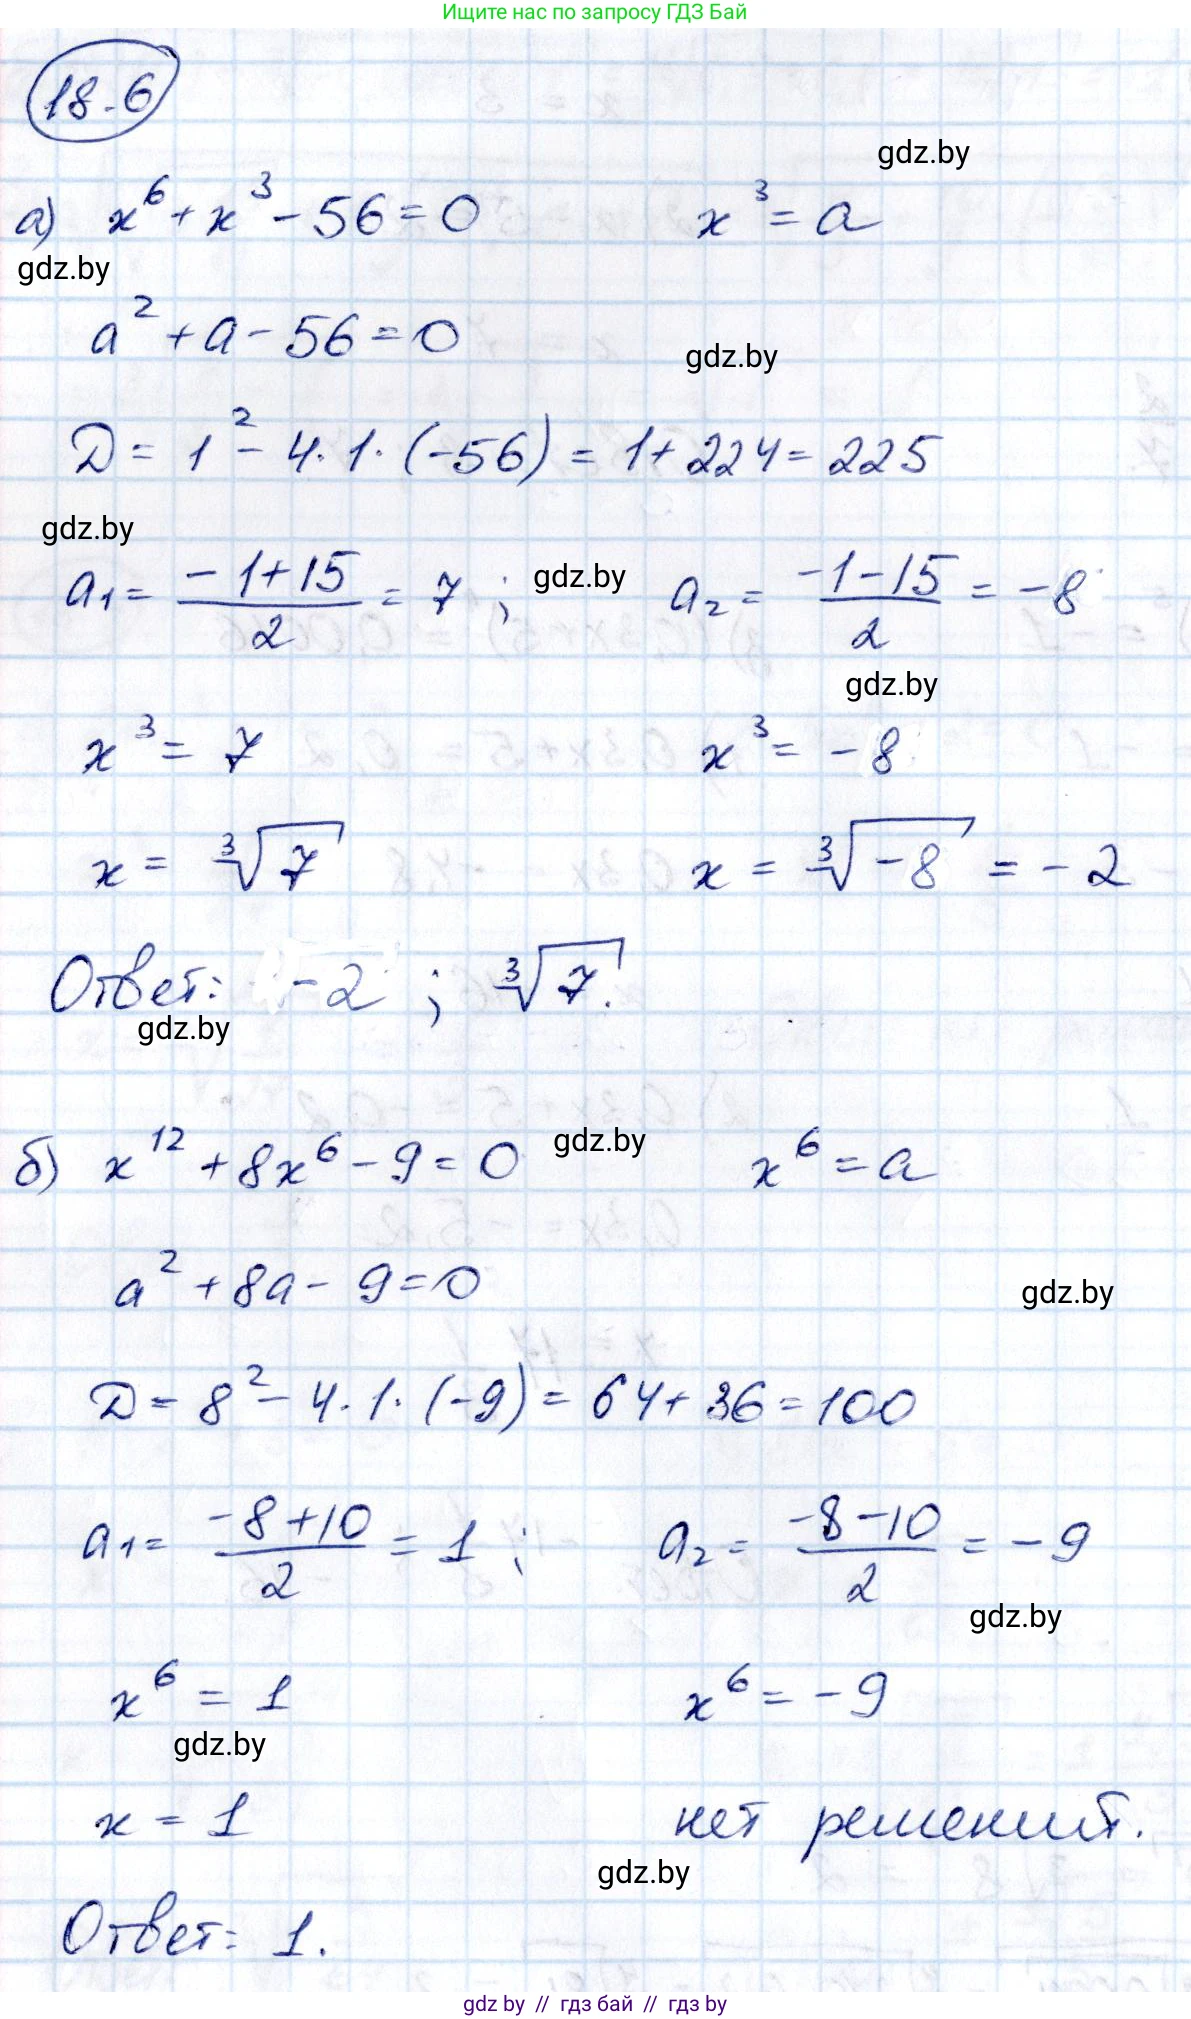 Ищите нас по запросу ГДЗ Бай
18.6
gdz.by
а) x⁶ + x³ - 56 = 0 x³ = a
gdz.by
a² + a - 56 = 0
gdz.by
D = 1² - 4·1·(-56) = 1 + 224 = 225
gdz.by
a₁ = (-1+15)/2 = 7 ; gdz.by a₂ = (-1-15)/2 = -8
gdz.by
x³ = 7 x³ = -8
x = ∛7 x = ∛-8 = -2
Ответ: -2 ; ∛7.
gdz.by
б) x¹² + 8x⁶ - 9 = 0 gdz.by x⁶ = a
a² + 8a - 9 = 0 gdz.by
D = 8² - 4·1·(-9) = 64 + 36 = 100
a₁ = (-8+10)/2 = 1 ; a₂ = (-8-10)/2 = -9
gdz.by
x⁶ = 1 x⁶ = -9
gdz.by
x = 1 нет решений.
gdz.by
Ответ: 1.
gdz by // гдз бай // гдз by